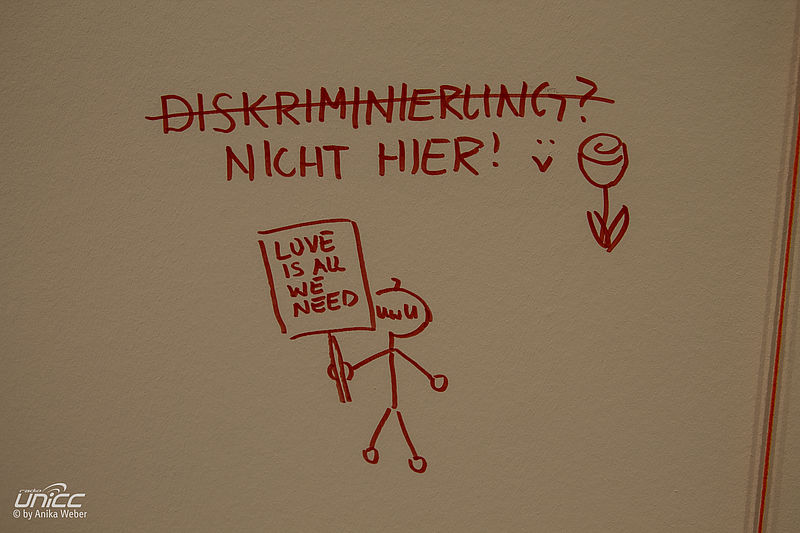 DISKRIMINIERUNG?
NICHT HIER!
LOVE
IS ALL
WE
NEED
uwu
radio
UNiCC
© by Anika Weber